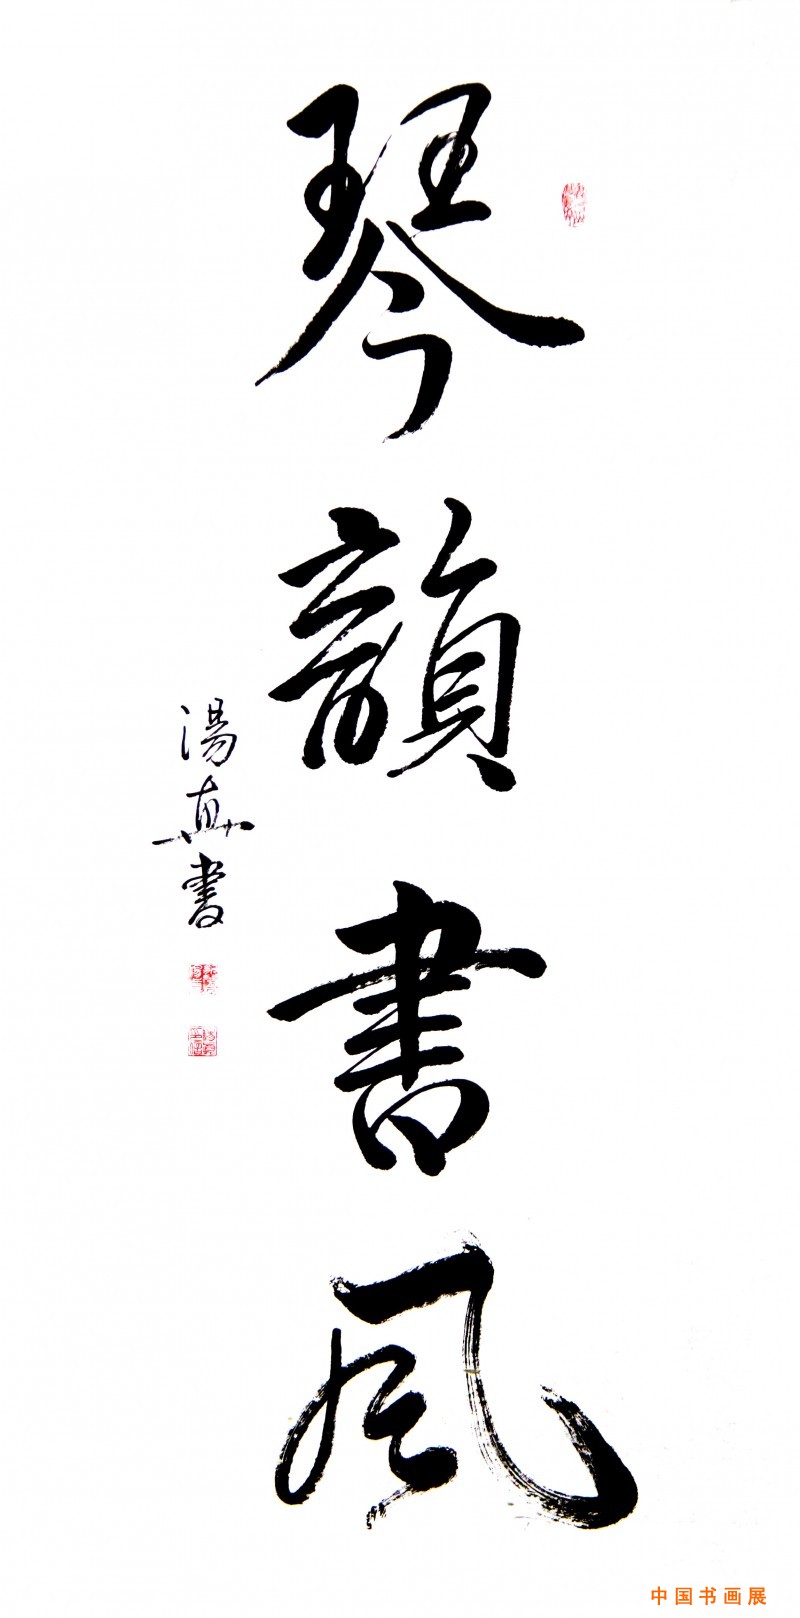 琴韻書風
湯真書
中国书画展